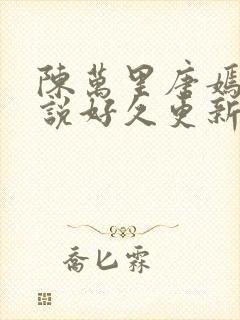 陳萬里唐嫣
說好久更新
喬匕霖